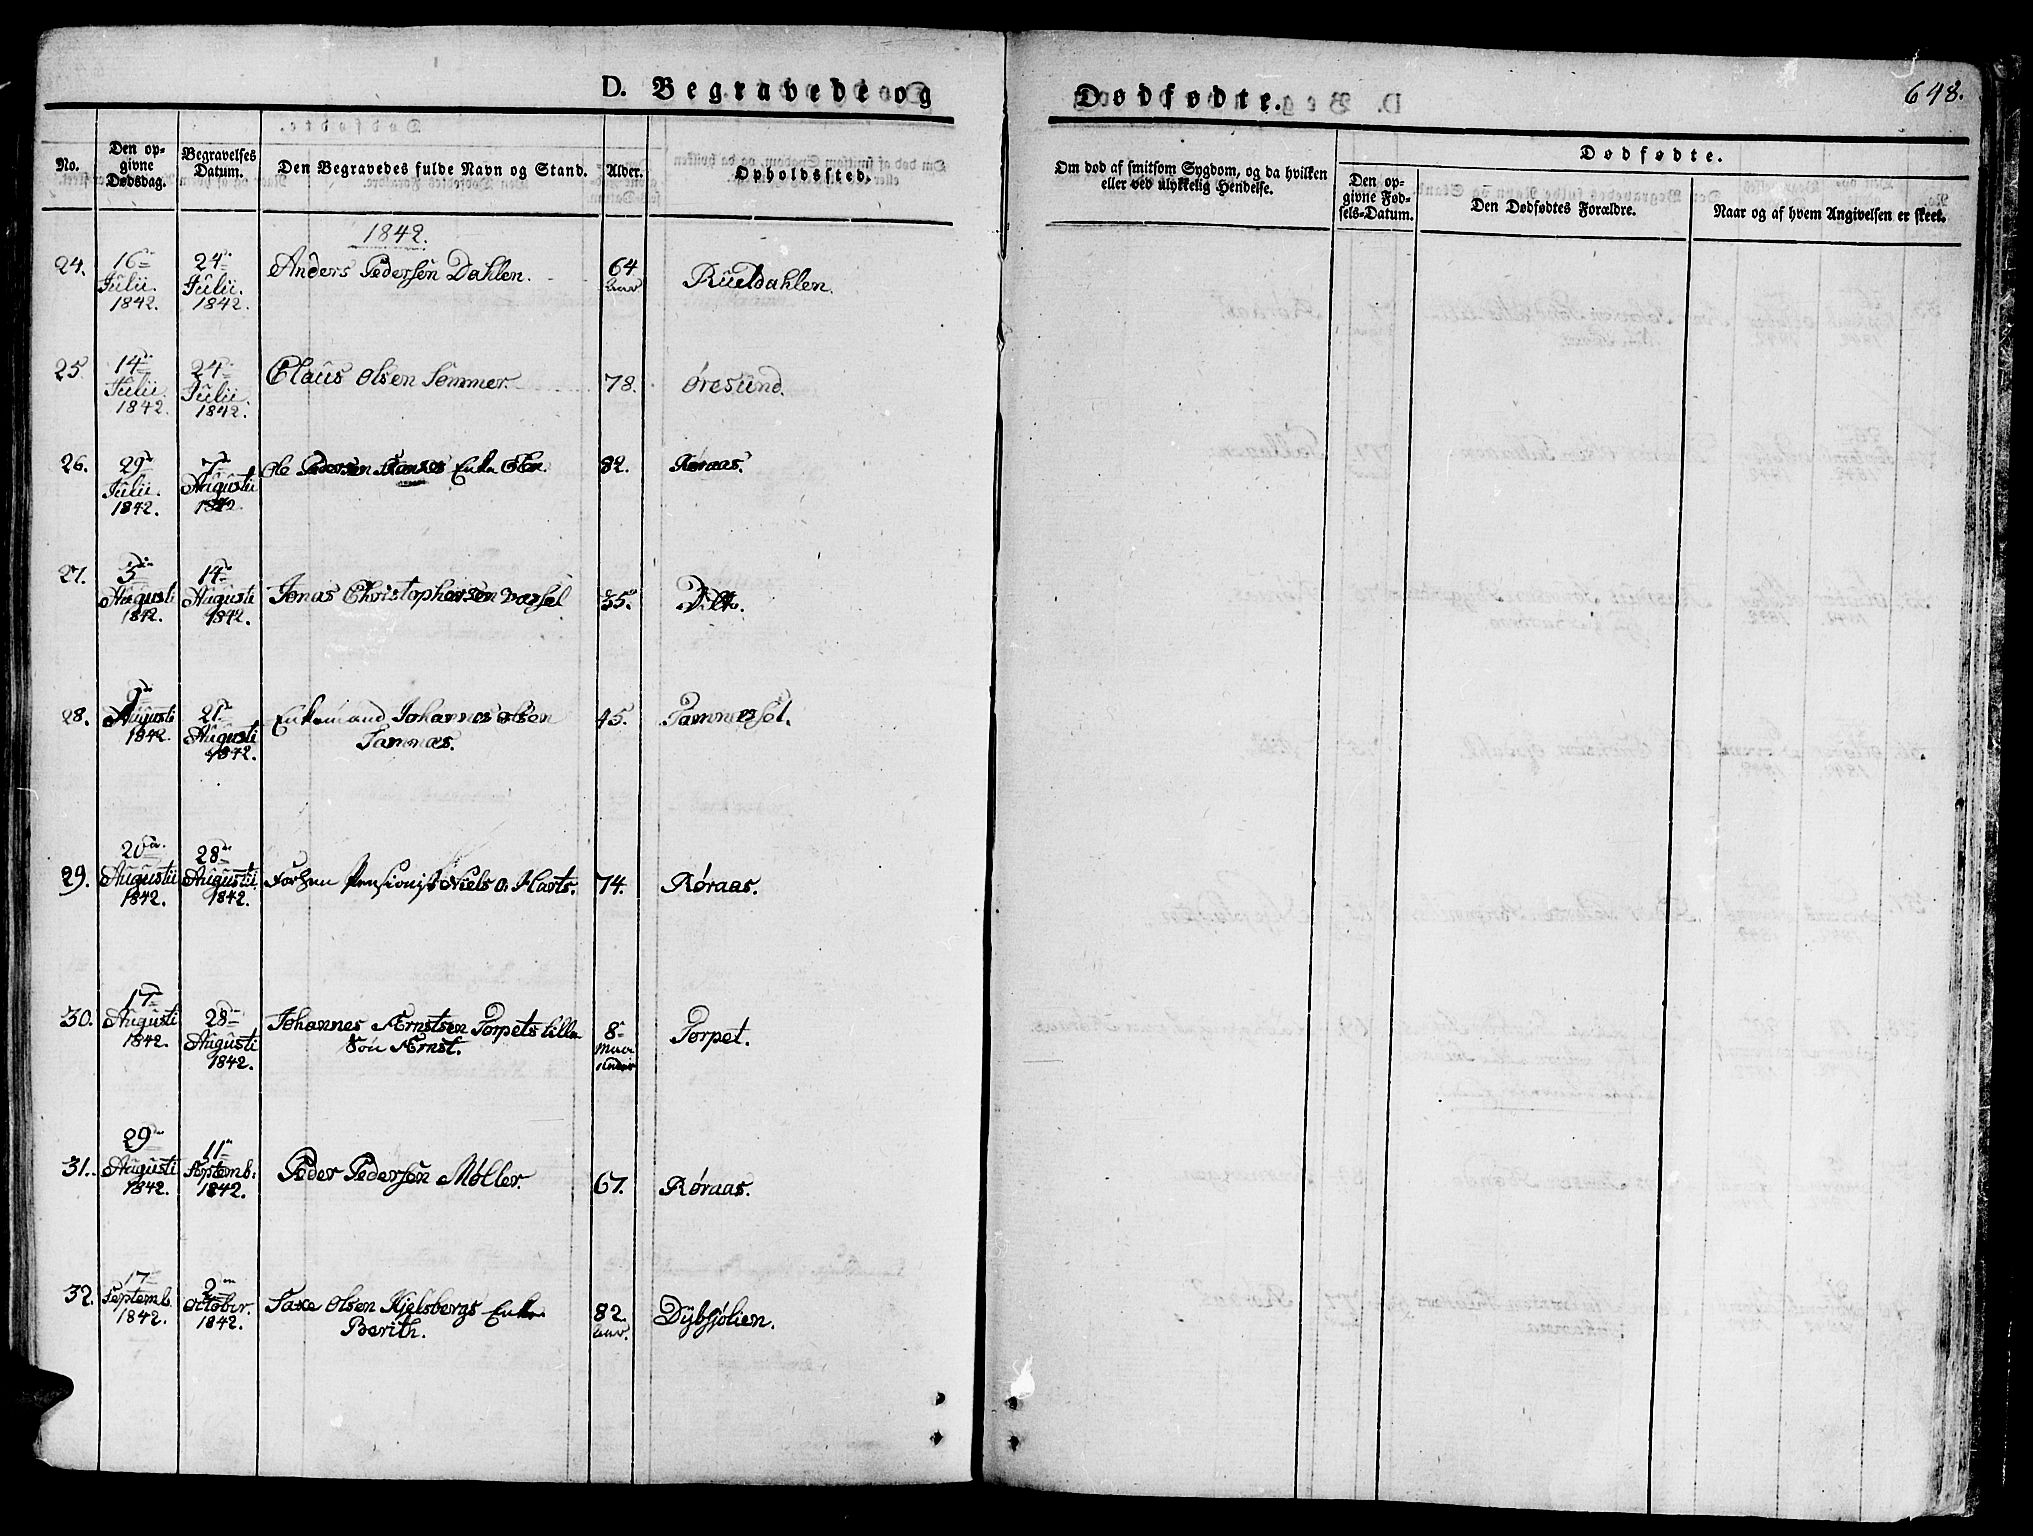 D. Begravede og Dødfødte.
648.
No.
Den op-
givne
Dødsdag.
Begravelses
Datum.
Den Begravedes fulde Navn og Stand.
Alder.
Opholdssted.
Om død af smitsom Sygdom, og da hvilken
eller ved ulykkelig Hendelse.
Dødfødte.
Den op-
givne Fød-
sels-Datum.
Den Dødfødtes Forældre.
Naar og af hvem Angivelsen er skeet.
1842.
24.
16de
Julii.
1842.
24de
Julii.
1842.
Anders Pedersen Dahlen.
64
Aar
Rueldahlen.
25
14de
Julii.
1842.
24de
Julii.
1842.
Claus Olsen Sommer.
78.
Øresund.
26.
29de
Julii.
1842.
7de
Augusti
1842
Ole Pedersen Enke
82.
Røraas.
27.
3die
Augusti
1842.
14de
Augusti
1842.
Jonas Christophersen
35.
28.
9de
Augusti
1842.
21de
Augusti
1842.
Enkemand Johannes Olsen
Tamnæs.
45.
Tamnæsel.
29.
20de
Augustii
1842.
28de
Augustii
1842.
Forhen Pensionist Niels O. Harts.
74.
Røraas.
30.
17de
Augusti
1842.
28de
Augusti
1842.
Johannes Ærnstsen Torpets lille
Søn Ærnst.
8te
Maaneder
Torpet.
31.
29de
Augusti
1842.
11te
Septemb.
1842.
Peder Pedersen Møller.
67.
Røraas.
32.
17de
Septemb.
1842.
2den
October.
1842.
Saxe Olsen Kjelsbergs Enke
Berith.
82.
Aar.
Dybsjølien.